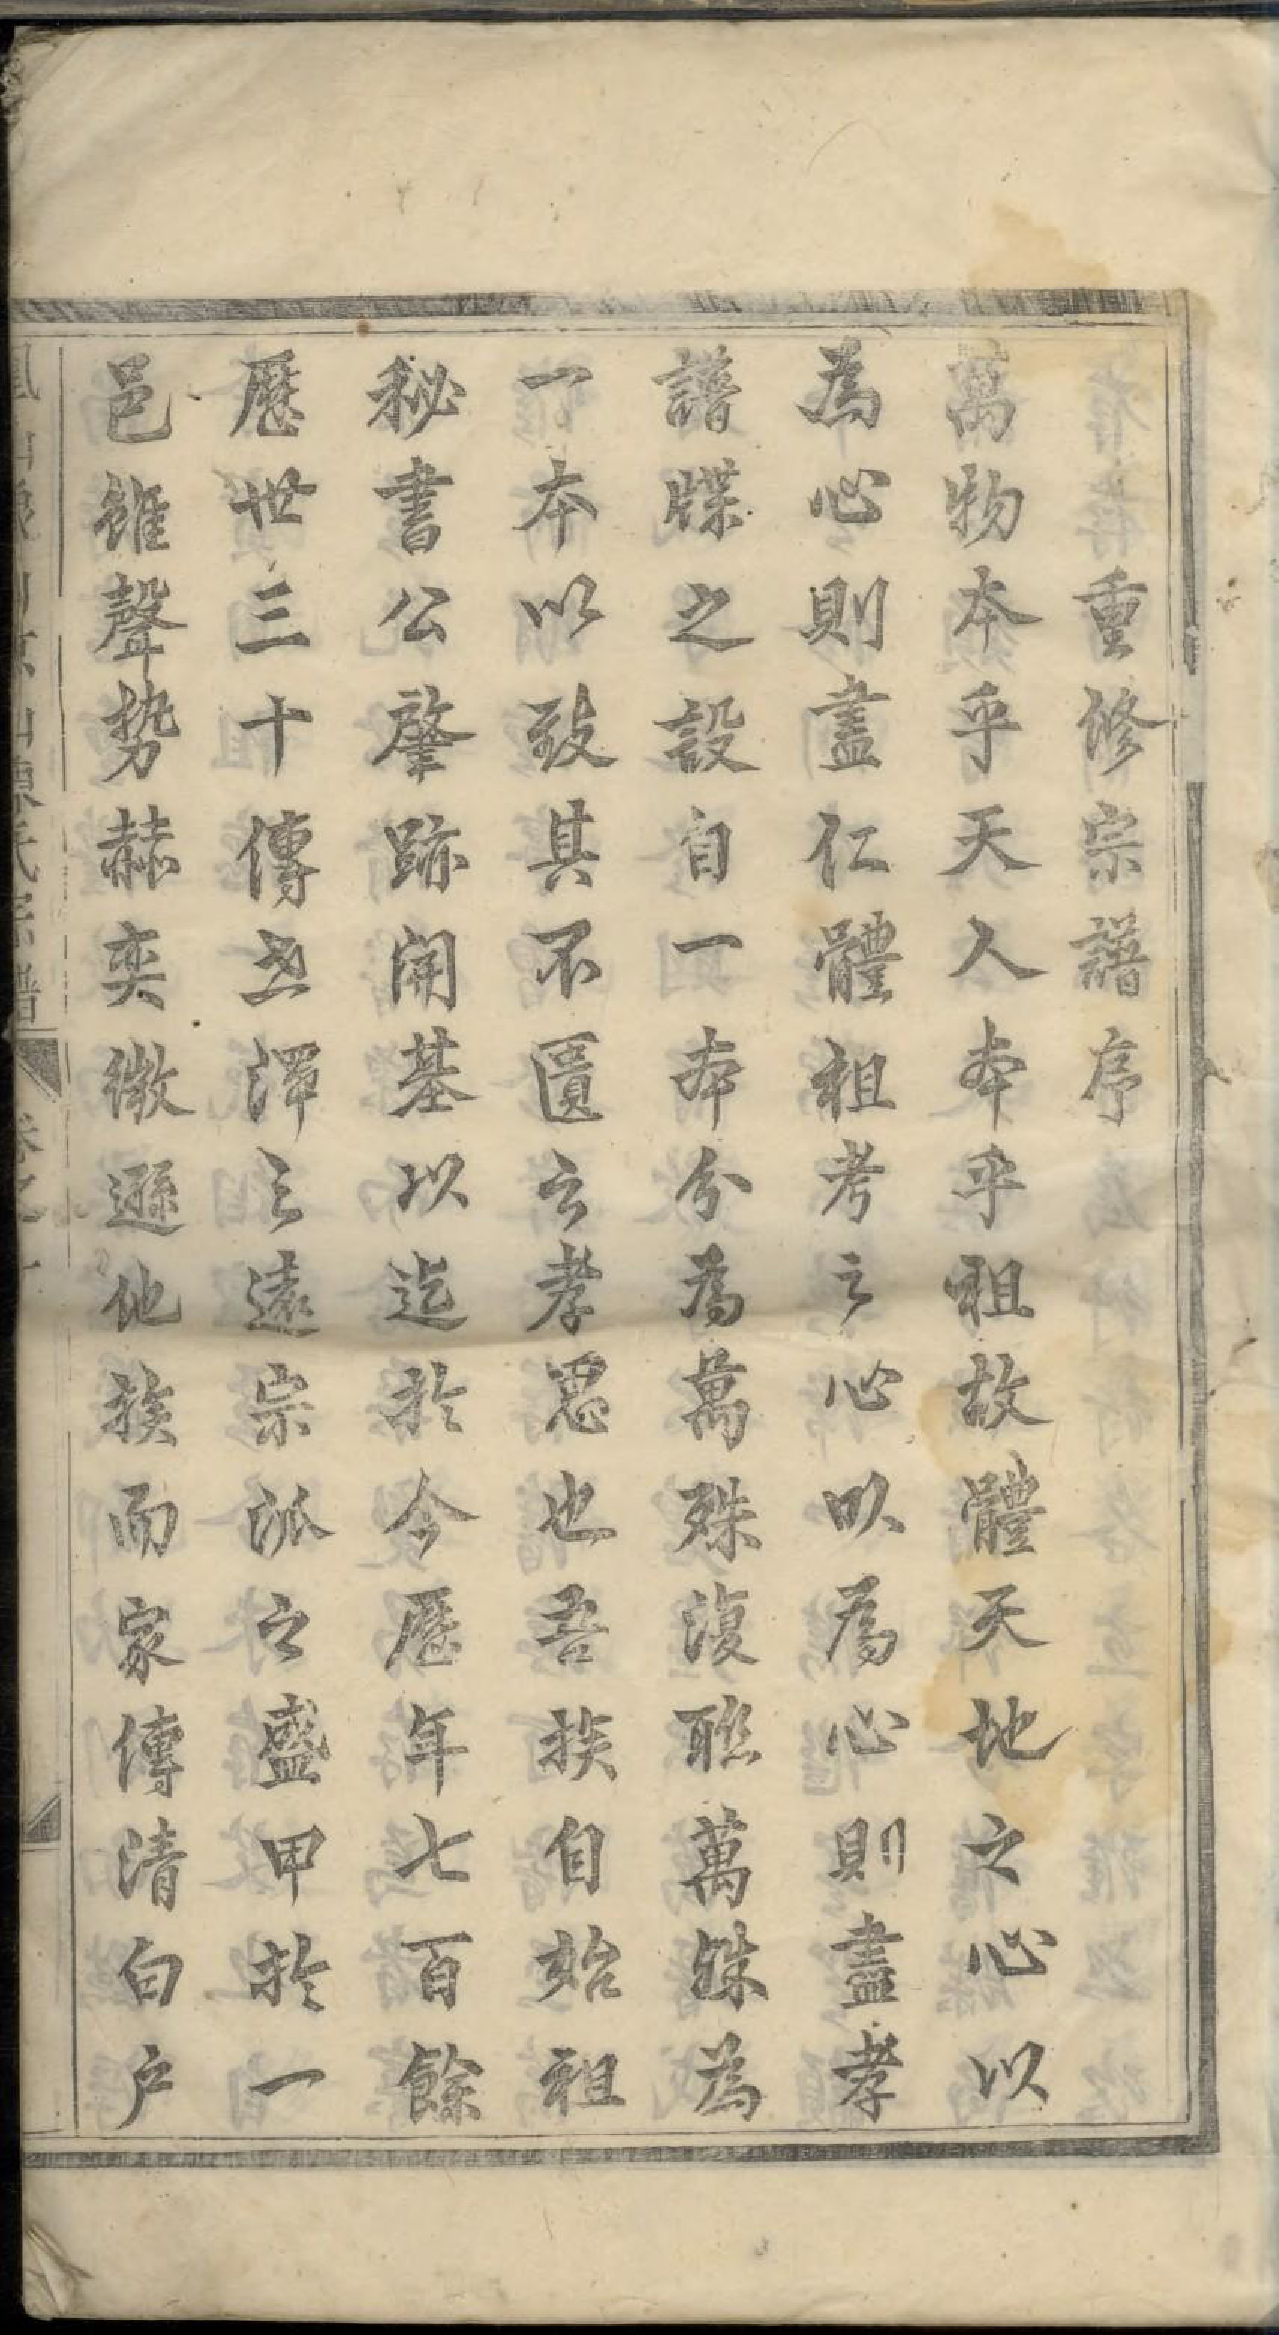 重修宗譜序
萬物本乎天人本乎祖故體天地之心以
為心則盡仁體祖考之心以為心則盡孝
譜牒之設自一本分為萬殊復聯萬殊為
一本以致其不匱之孝思也吾族自始祖
秘書公肇跡開基以迄於今歷年七百餘
歷世三十傳世澤之遠宗派之盛甲於一
邑雖聲势赫奕微遜他族而家傳清白戶
氏宗譜